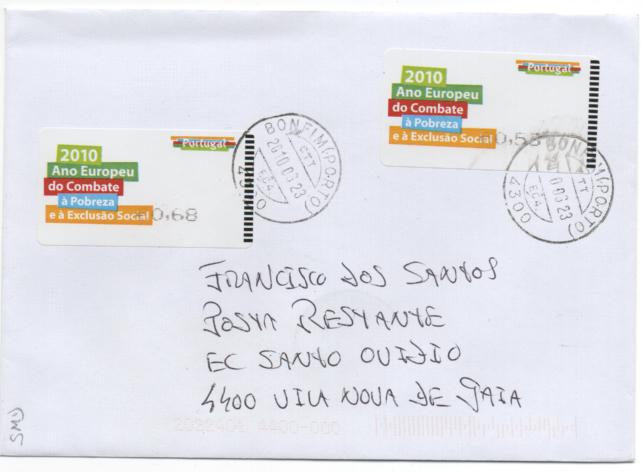 Portugal
2010
Ano Europeu
do Combate
à Pobreza
e à Exclusão Social
0,53
BONFIM (PORTO)
CTT
EC4.
4300
Portugal
2010
Ano Europeu
do Combate
à Pobreza
e à Exclusão Social
0,68
BONFIM (PORTO)
CTT
2010 03 23
EC4.
4300
FRANCISCO DOS SANTOS
POSTA RESTANTE
EC SANTO OVIDIO
4400 VILA NOVA DE GAIA
4400-000
SMD